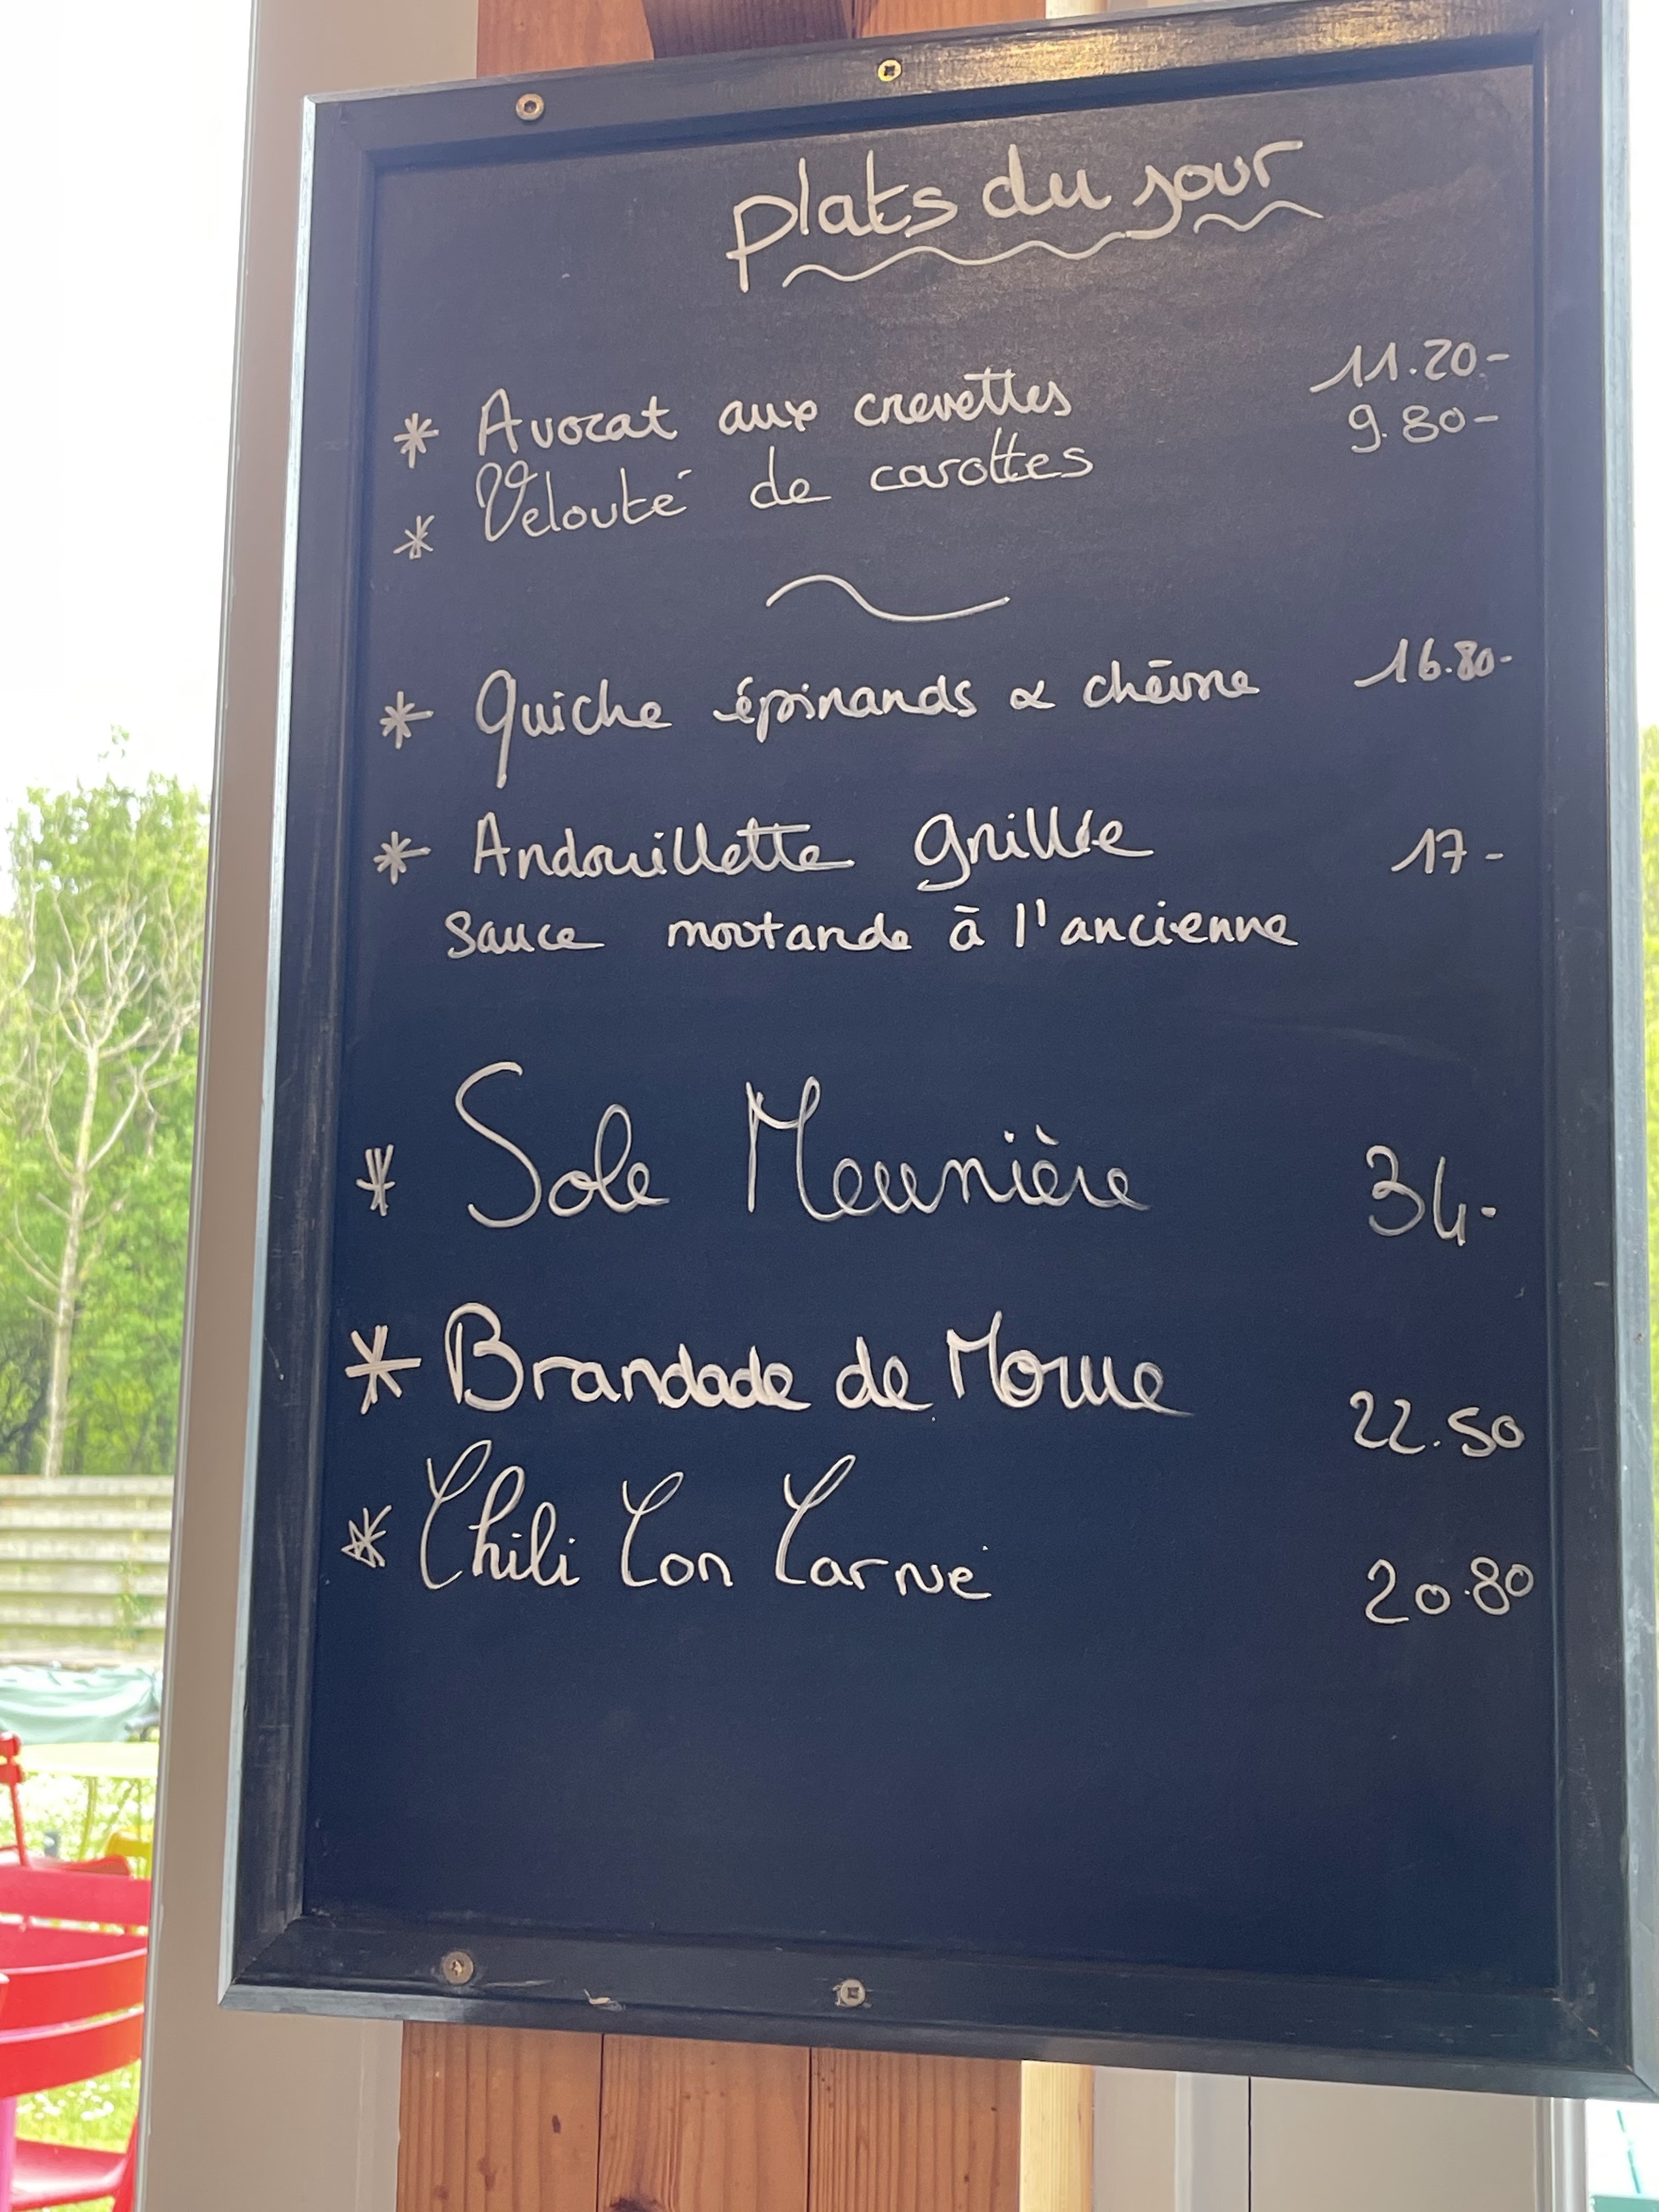 plats du jour
* Avocat aux crevettes 11.20-
* Velouté de carottes 9.80-
* Quiche épinards & chèvre 16.80-
* Andouillette grillée 17-
sauce moutarde à l'ancienne
* Sole Meunière 34-
* Brandade de Morue 22.50
* Chili Con Carne 20.80